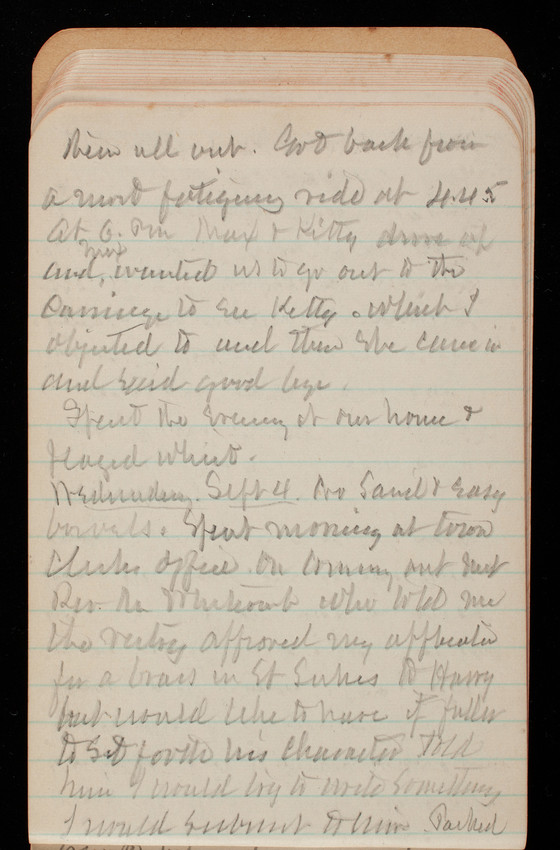 all out. Got back from
a most fatiguing ride at 4.45
At 6. Pm Max & Kitty drove up
and, Max wanted us to go out to the
Carriage to see Kitty. which I
objected to and then She came in
and said good bye.
Spent the Evening at our home &
played whist.
Wednesday. Sept 4. & Easy
bowels. Spent morning at town
Clerks office. On coming out met
Rev. Mr Whitcomb who told me
the vestry approved my application
for a brass in St Lukes to Harry
but would like to have it fuller
to set forth his character. Told
him I would try to write Something
I would submit to him. Packed